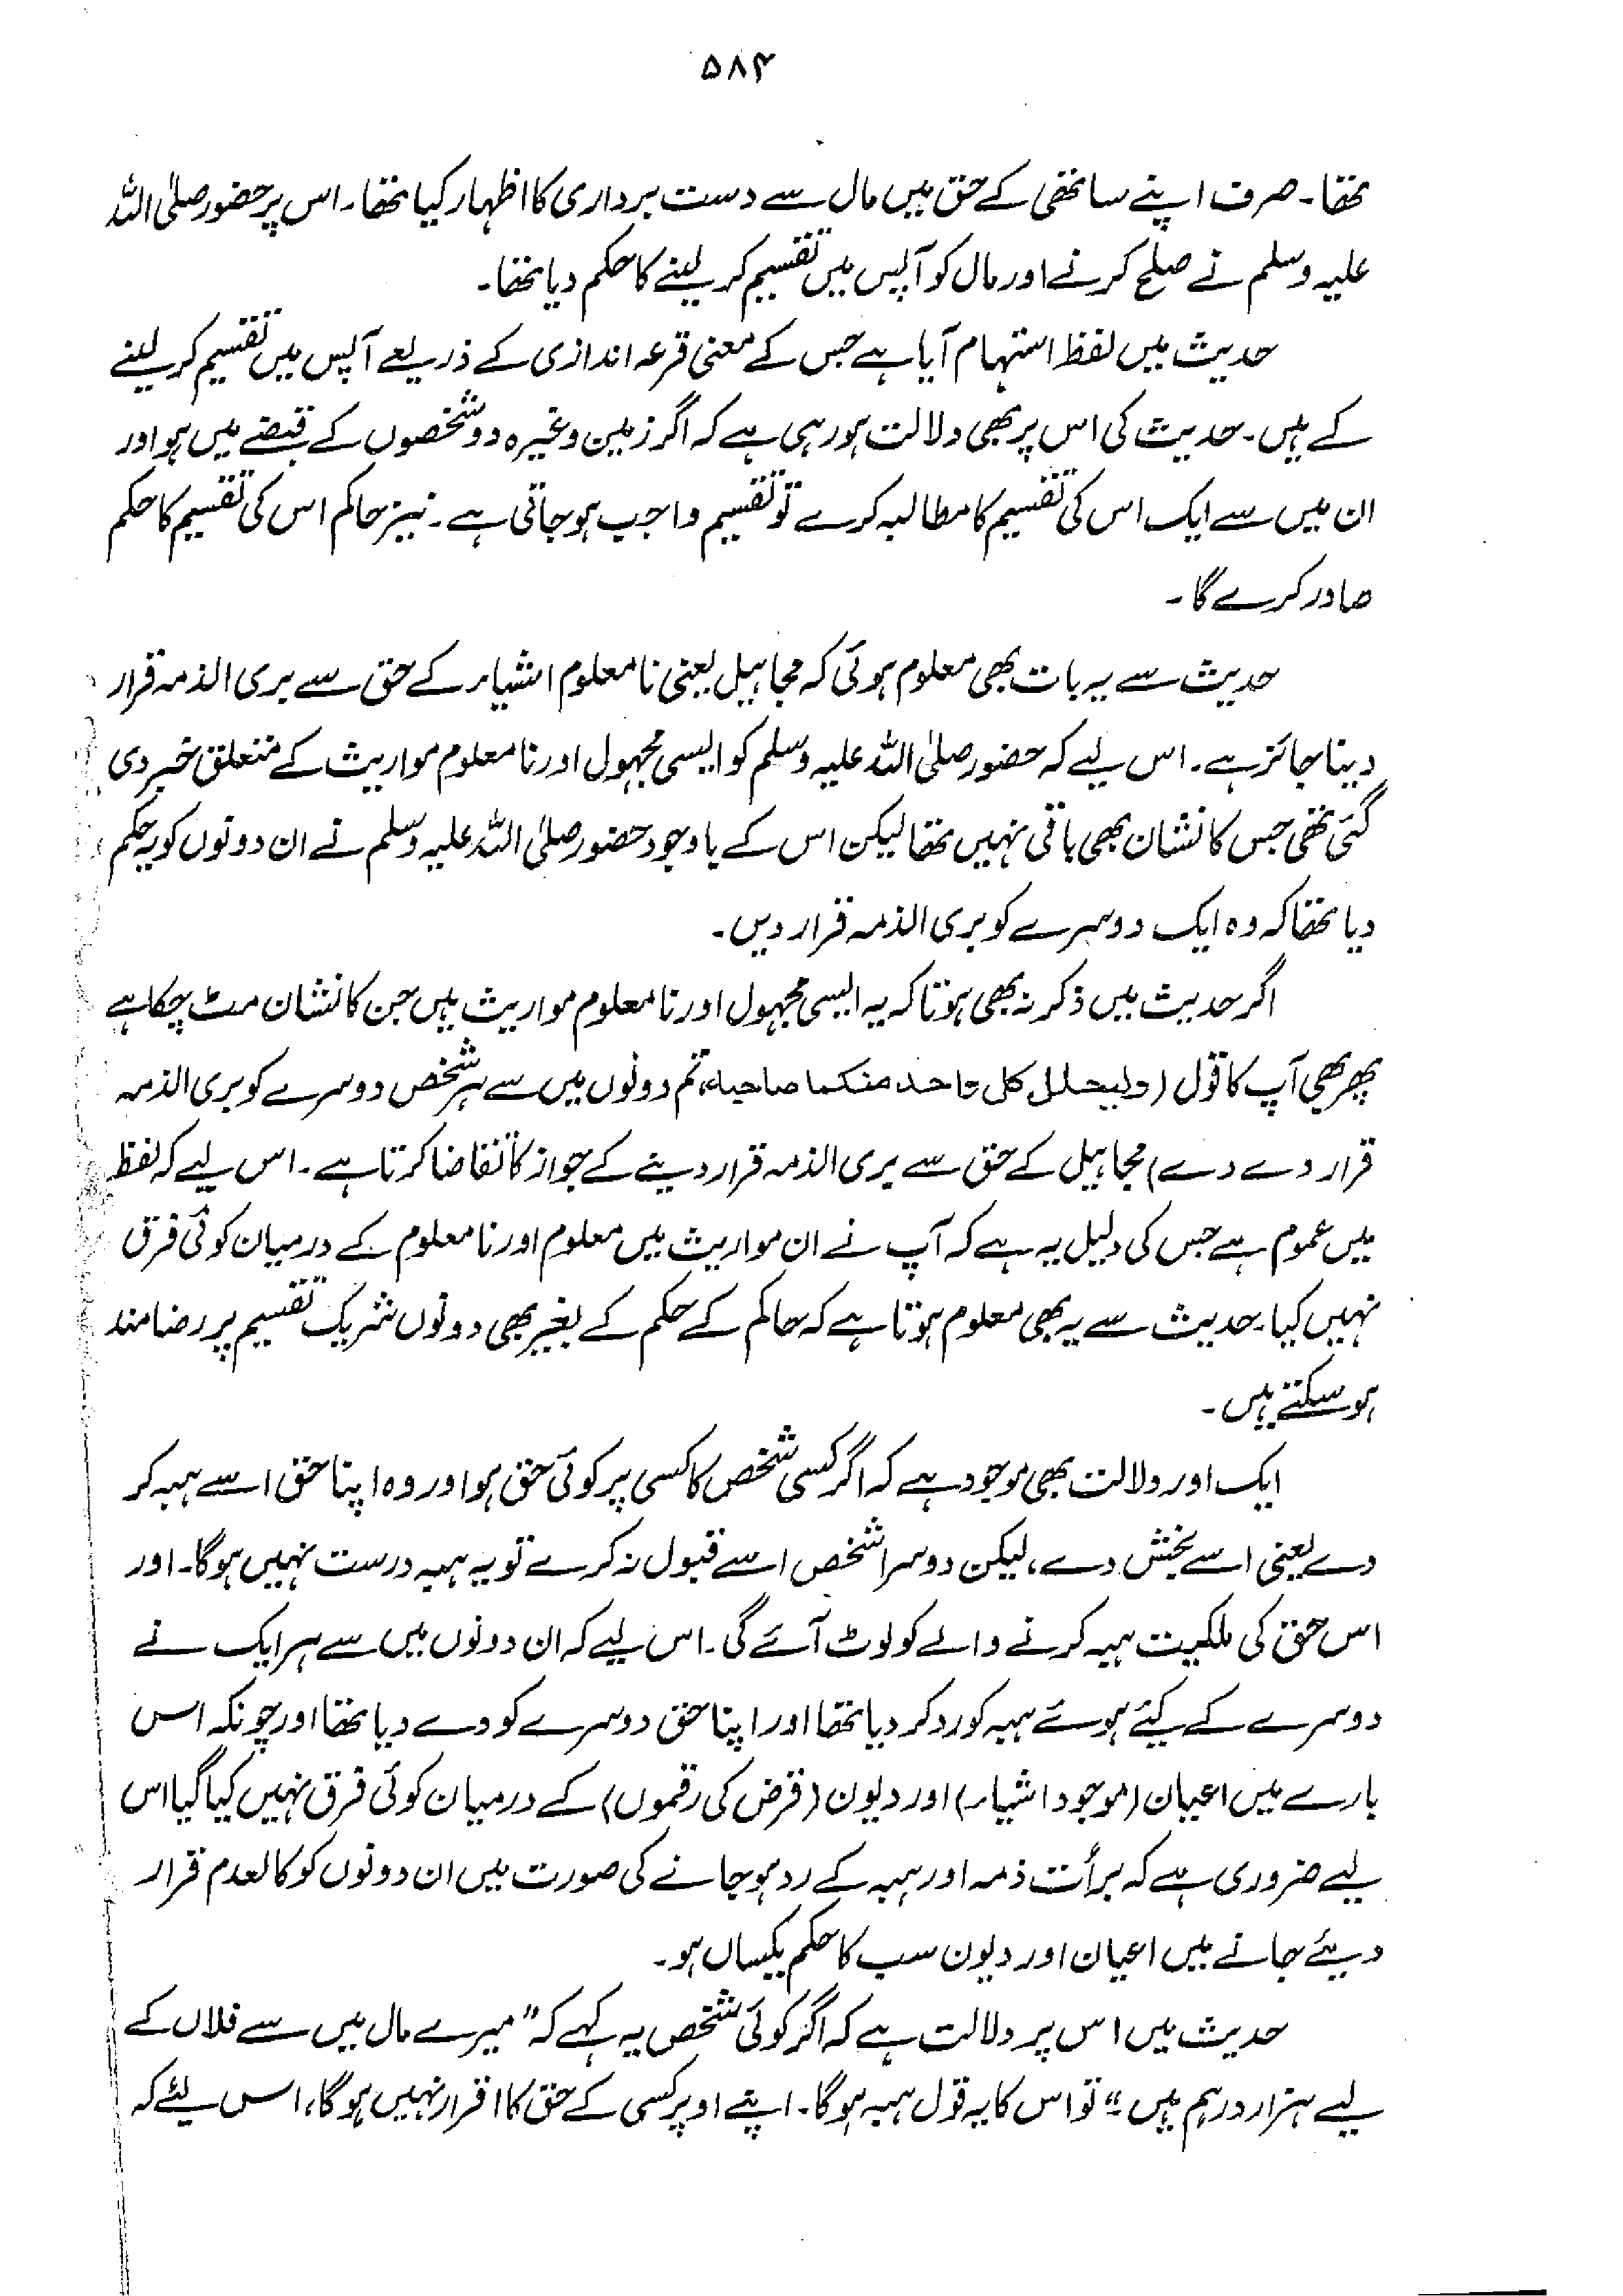 ۵۸۴
تھا۔ صرف اپنے ساتھی کے حق میں مال سے دست برداری کا اظہار کیا تھا۔ اس پر حضور صلی اللہ
علیہ وسلم نے صلح کرنے اور مال کو آپس میں تقسیم کر لینے کا حکم دیا تھا۔
حدیث میں لفظ استہام آیا ہے جس کے معنی قرعہ اندازی کے ذریعے آپس میں تقسیم کر لینے
کے ہیں۔ حدیث کی اس پر بھی دلالت ہو رہی ہے کہ اگر زمین وغیرہ دو شخصوں کے قبضے میں ہو اور
ان میں سے ایک اس کی تقسیم کا مطالبہ کرے تو تقسیم واجب ہو جاتی ہے۔ نیز حاکم اس کی تقسیم کا حکم
صادر کرے گا۔
حدیث سے یہ بات بھی معلوم ہوئی کہ مجاہیل یعنی نامعلوم اشیاء کے حق سے بری الذمہ قرار
دینا جائز ہے۔ اس لیے کہ حضور صلی اللہ علیہ وسلم کو ایسی مجہول اور نامعلوم مواریث کے متعلق خبر دی
گئی تھی جس کا نشان بھی باقی نہیں تھا لیکن اس کے باوجود حضور صلی اللہ علیہ وسلم نے ان دونوں کو یہ حکم
دیا تھا کہ وہ ایک دوسرے کو بری الذمہ قرار دیں۔
اگر حدیث میں ذکر نہ بھی ہوتا کہ یہ ایسی مجہول اور نامعلوم مواریث ہیں جن کا نشان مٹ چکا ہے
پھر بھی آپ کا قول (ولیحلل کل واحد منکما صاحبہ، تم دونوں میں سے ہر شخص دوسرے کو بری الذمہ
قرار دے دے) مجاہیل کے حق سے بری الذمہ قرار دینے کے جواز کا تقاضا کرتا ہے۔ اس لیے کہ لفظ
میں عموم ہے جس کی دلیل یہ ہے کہ آپ نے ان مواریث میں معلوم اور نامعلوم کے درمیان کوئی فرق
نہیں کیا۔ حدیث سے یہ بھی معلوم ہوتا ہے کہ حاکم کے حکم کے بغیر بھی دونوں شریک تقسیم پر رضامند
ہو سکتے ہیں۔
ایک اور دلالت بھی موجود ہے کہ اگر کسی شخص کا کسی پر کوئی حق ہو اور وہ اپنا حق اسے ہبہ کر
دے یعنی اسے بخش دے، لیکن دوسرا شخص اسے قبول نہ کرے تو یہ ہبہ درست نہیں ہوگا۔ اور
اس حق کی ملکیت ہبہ کرنے والے کو لوٹ آئے گی۔ اس لیے کہ ان دونوں میں سے ہر ایک نے
دوسرے کے کیئے ہوئے ہبہ کو رد کر دیا تھا اور اپنا حق دوسرے کو دے دیا تھا اور چونکہ اس
بارے میں اعیان (موجود اشیاء) اور دیون (قرض کی رقموں) کے درمیان کوئی فرق نہیں کیا گیا اس
لیے ضروری ہے کہ برأت ذمہ اور ہبہ کے رد ہو جانے کی صورت میں ان دونوں کو کالعدم قرار
دیئے جانے میں اعیان اور دیون سب کا حکم یکساں ہو۔
حدیث میں اس پر دلالت ہے کہ اگر کوئی شخص یہ کہے کہ "میرے مال میں سے فلاں کے
لیے ہزار درہم ہیں" تو اس کا یہ قول ہبہ ہوگا۔ اپنے اوپر کسی کے حق کا اقرار نہیں ہوگا، اس لئے کہ